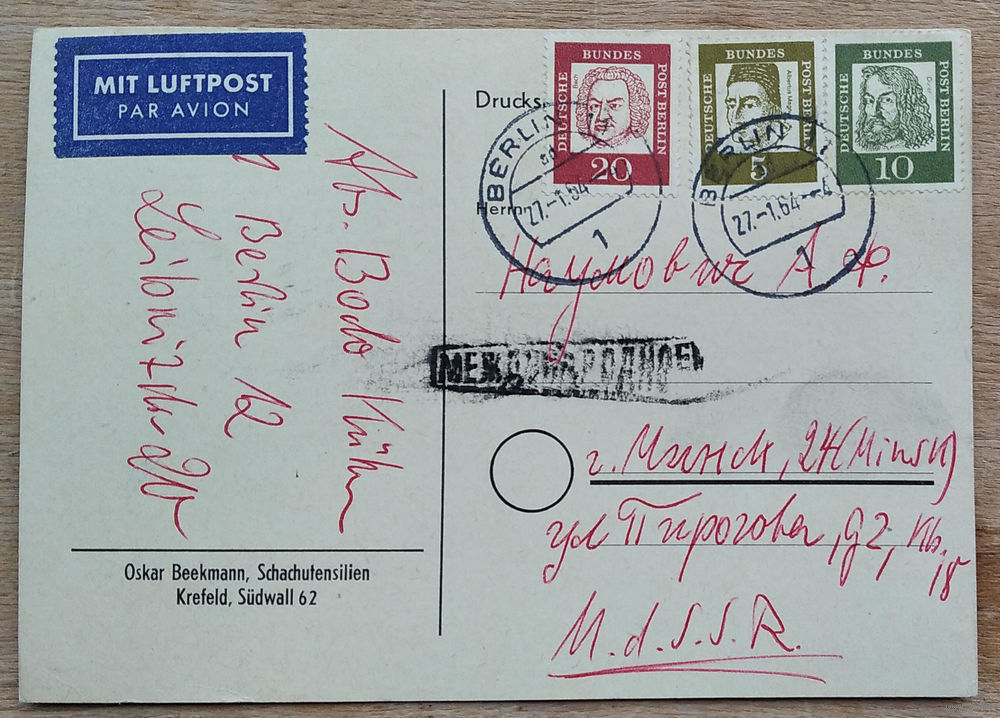 MIT LUFTPOST
PAR AVION
Abs. Bodo Kühn
1 Berlin 12
Oskar Beekmann, Schachutensilien
Krefeld, Südwall 62
Drucks.
DEUTSCHE BUNDES POST BERLIN
Bach
20
DEUTSCHE BUNDES POST BERLIN
5
DEUTSCHE BUNDES POST BERLIN
Dürer
10
BERLIN 11
27.-1.64
1
BERLIN 11
27.-1.64--4
1
Herrn
Наумович А. Ф.
МЕЖДУНАРОДНОЕ
г. Минск, 24 (Minsk)
ул Пирогова, д2, кв.
18
U.d.S.S.R.